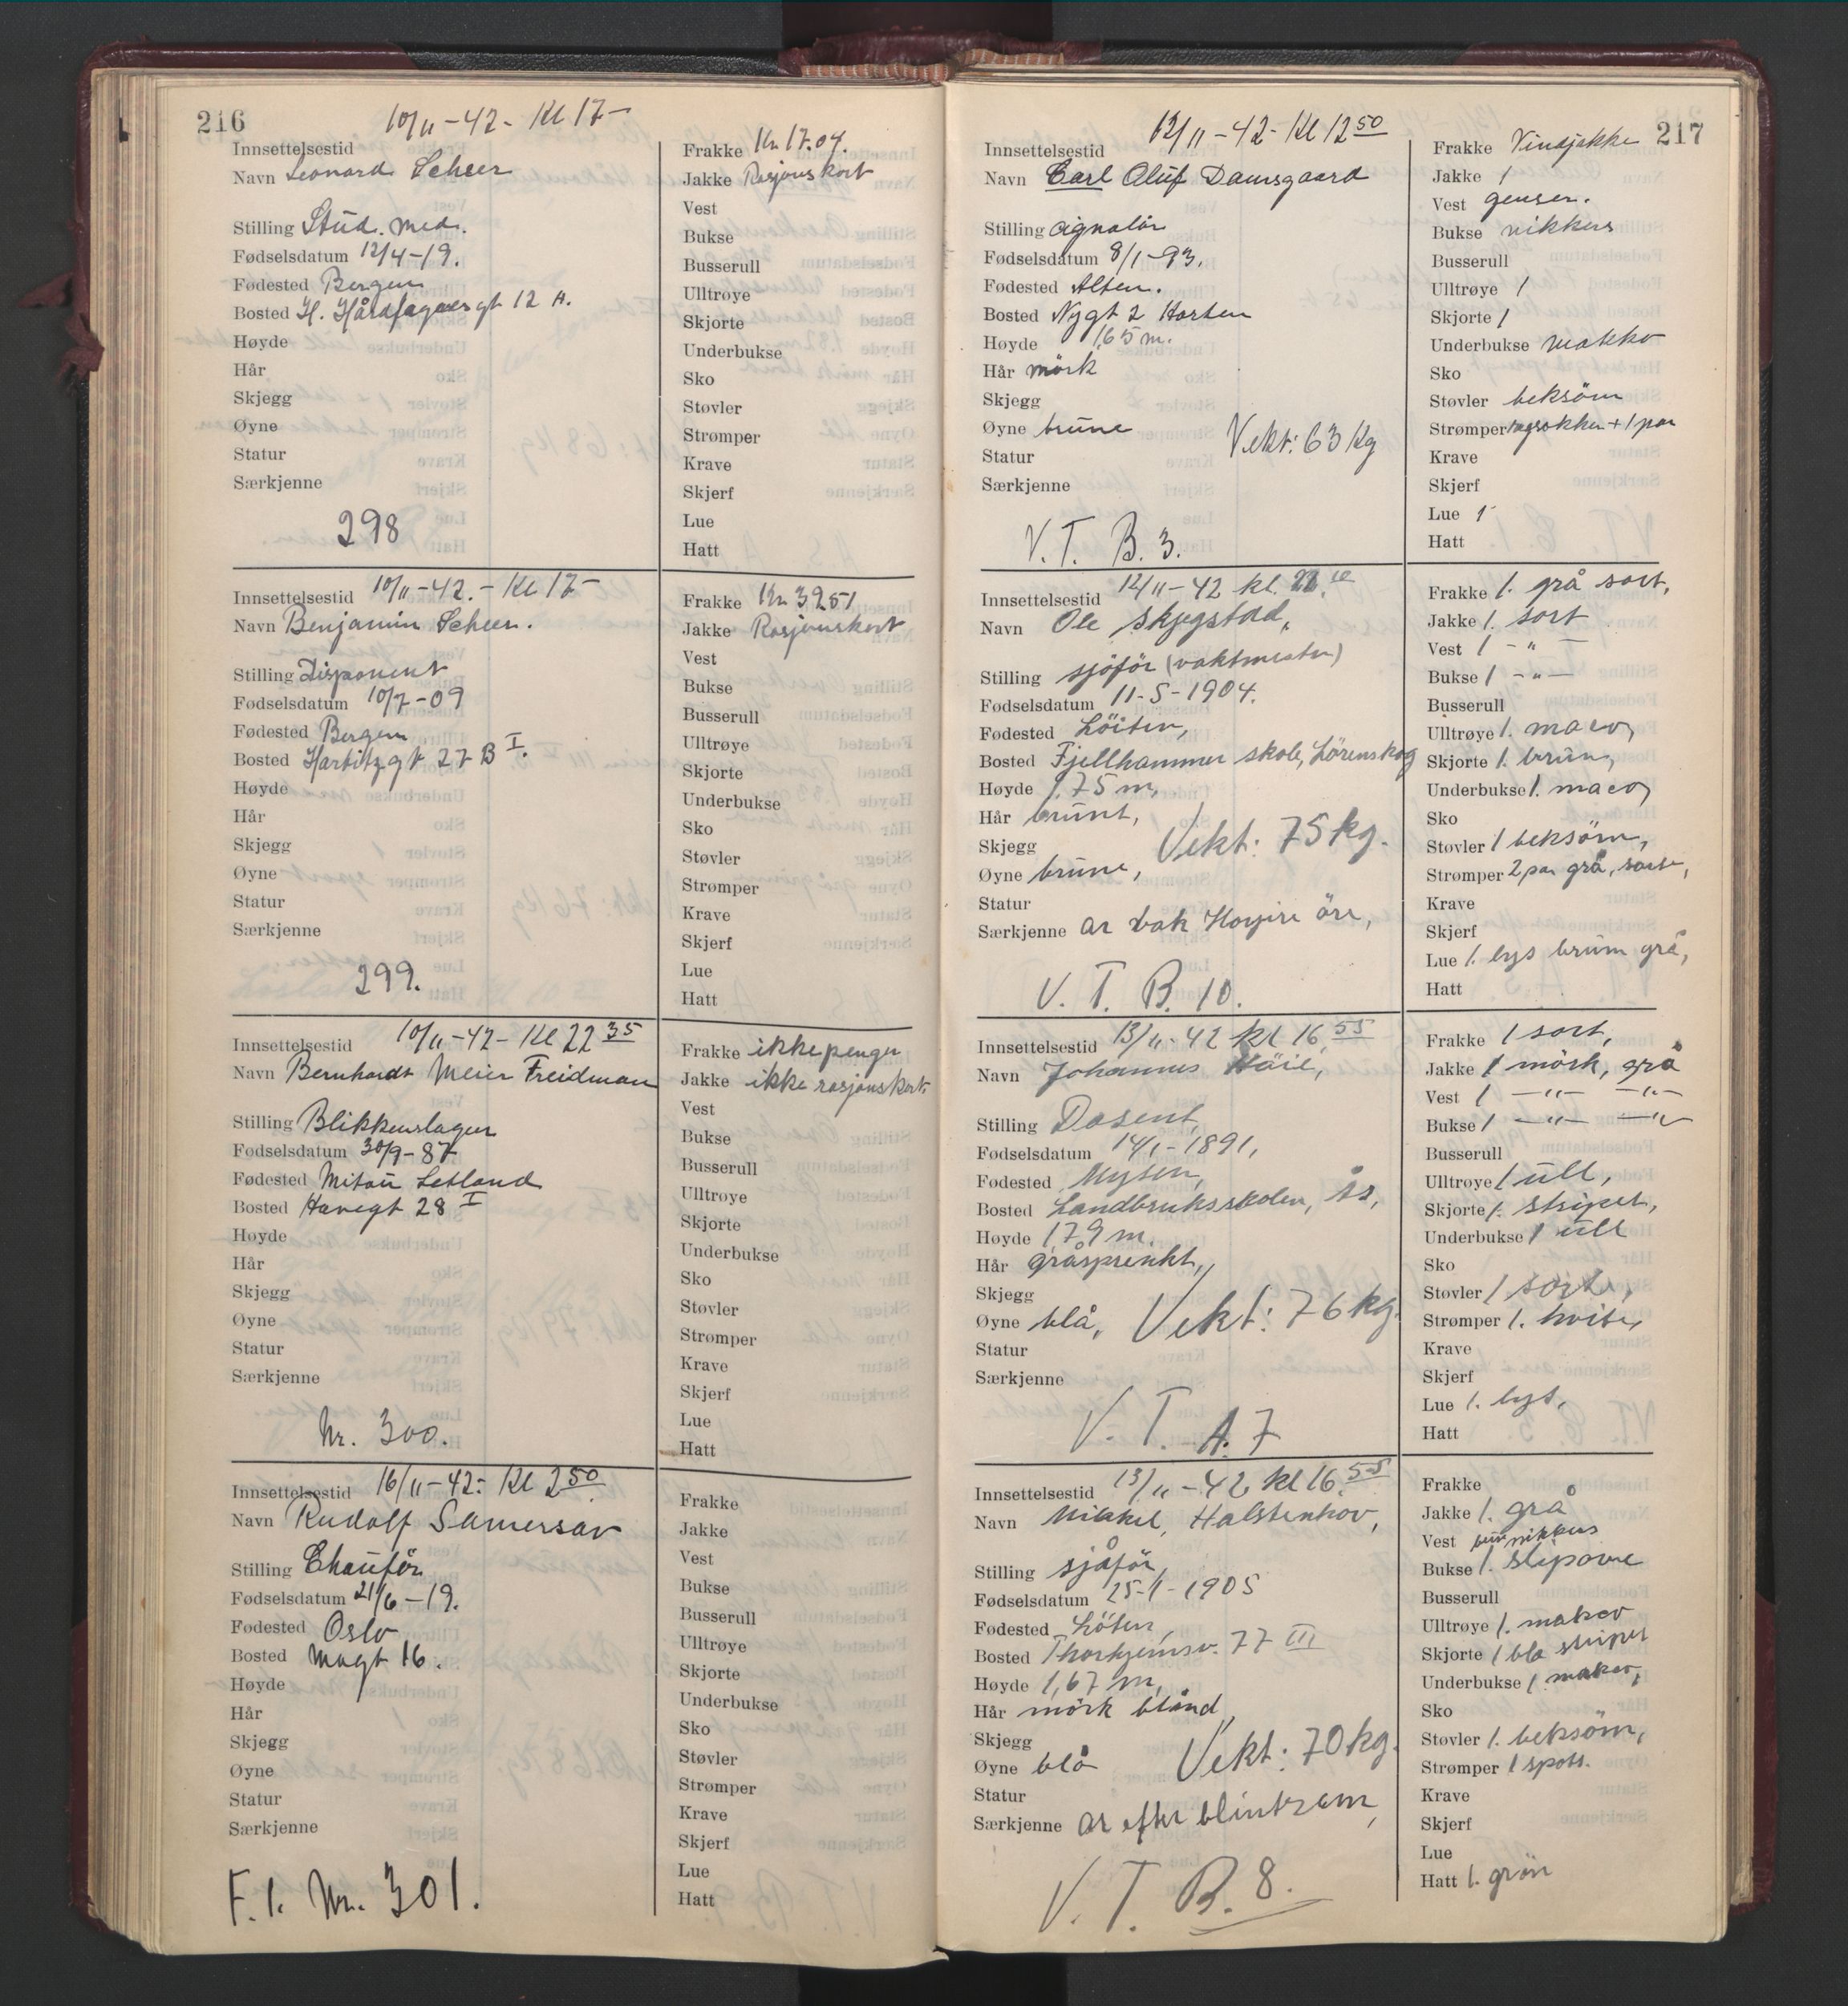 216
Innsettelsestid 10/11-42- Kl 17-
Navn Leonard Scheer
Stilling Stud. med.
Fødselsdatum 12/4-19.
Fødested Bergen
Bosted H. Hårdfagersgt 12 A.
Høyde
Hår
Skjegg
Øyne
Statur
Særkjenne
298
Frakke Kr. 17.04.
Jakke Rasjonskort
Vest
Bukse
Busserull
Ulltrøye
Skjorte
Underbukse
Sko
Støvler
Strømper
Krave
Skjerf
Lue
Hatt
Innsettelsestid 10/11-42.- Kl 17-
Navn Benjamin Scheer.
Stilling Disponent
Fødselsdatum 10/7-09
Fødested Bergen
Bosted Harbitzgt 27 B I.
Høyde
Hår
Skjegg
Øyne
Statur
Særkjenne
299.
Frakke Kr. 3251
Jakke Rasjonskort
Vest
Bukse
Busserull
Ulltrøye
Skjorte
Underbukse
Sko
Støvler
Strømper
Krave
Skjerf
Lue
Hatt
Innsettelsestid 10/11-42- Kl 22 35
Navn Bernhardt Meier Freidman
Stilling Blikkenslager
Fødselsdatum 30/9-87
Fødested Mitau Letland
Bosted Havegt 28 I
Høyde
Hår
Skjegg
Øyne
Statur
Særkjenne
Nr. 300.
Frakke ikke penger
Jakke ikke rasjonskort.
Vest
Bukse
Busserull
Ulltrøye
Skjorte
Underbukse
Sko
Støvler
Strømper
Krave
Skjerf
Lue
Hatt
Innsettelsestid 16/11-42- Kl 2 50
Navn Rudolf Samersav
Stilling Chauffør
Fødselsdatum 21/6-19.
Fødested Oslo
Bosted Møgt 16.
Høyde
Hår
Skjegg
Øyne
Statur
Særkjenne
F. 1. Nr. 301.
Frakke
Jakke
Vest
Bukse
Busserull
Ulltrøye
Skjorte
Underbukse
Sko
Støvler
Strømper
Krave
Skjerf
Lue
Hatt
217
Innsettelsestid 12/11-42- Kl 12 50
Navn Carl Oluf Damsgaard
Stilling agnatør
Fødselsdatum 8/1-93.
Fødested Alten.
Bosted Nygt 2 Horten
Høyde 1,65 m.
Hår mörk
Skjegg
Øyne brune
Vekt: 63 Kg
Statur
Særkjenne
V. T. B. 3.
Frakke Vindjakke
Jakke 1
Vest genser.
Bukse nikkers
Busserull
Ulltrøye 1
Skjorte 1
Underbukse makko
Sko
Støvler beksöm
Strømper ragsokker + 1 par
Krave
Skjerf
Lue 1
Hatt
Innsettelsestid 12/11-42 kl. 22.10
Navn Ole Skjegstad,
Stilling sjåför (vaktmester)
Fødselsdatum 11-5-1904.
Fødested Löiten,
Bosted Fjellhammer skole, Lörenskog
Høyde 1,75 m,
Hår brunt,
Skjegg
Vekt: 75 kg.
Øyne brune,
Statur
Særkjenne ar bak Höyire öre,
V. T. B. 10.
Frakke 1. grå sort,
Jakke 1. sort
Vest 1 - " -
Bukse 1 - " -
Busserull
Ulltrøye 1. maco,
Skjorte 1. brun,
Underbukse 1. maco,
Sko
Støvler 1 beksöm,
Strømper 2 par grå, sorte,
Krave
Skjerf
Lue 1. lys brun grå,
Hatt
Innsettelsestid 13/11-42 kl 16,55
Navn Johannes Höie,
Stilling Dosent,
Fødselsdatum 14/1-1891,
Fødested Mysen,
Bosted Landbruksskolen, Ås,
Høyde 1,79 m.
Hår gråsprenkt,
Skjegg
Øyne blå,
Vekt: 76 kg.
Statur
Særkjenne
V. T. A. 7
Frakke 1 sort,
Jakke 1 mörk, grå
Vest 1 -"- -"-
Bukse 1 -"- -"-
Busserull
Ulltrøye 1 ull,
Skjorte 1. stripet,
Underbukse 1 ull
Sko
Støvler 1 sorte,
Strømper 1. hvite,
Krave
Skjerf
Lue 1. lys,
Hatt
Innsettelsestid 13/11-42 kl 16.55
Navn Mikkel Halstenhov,
Stilling sjåför,
Fødselsdatum 25-1-1905
Fødested Löten,
Bosted Thorkjemsv. 77 III
Høyde 1,67 m,
Hår mörk blånd,
Skjegg
Øyne blå
Vekt: 70 kg.
Statur
Særkjenne ar efter blintzarm,
V. T. B. 8.
Frakke
Jakke 1. grå
Vest nikkers
Bukse 1. slipover
Busserull
Ulltrøye 1. makov
Skjorte 1 blå stripet
Underbukse 1 makov,
Sko
Støvler 1. beksöm,
Strømper 1 sports.
Krave
Skjerf
Lue
Hatt 1. grön